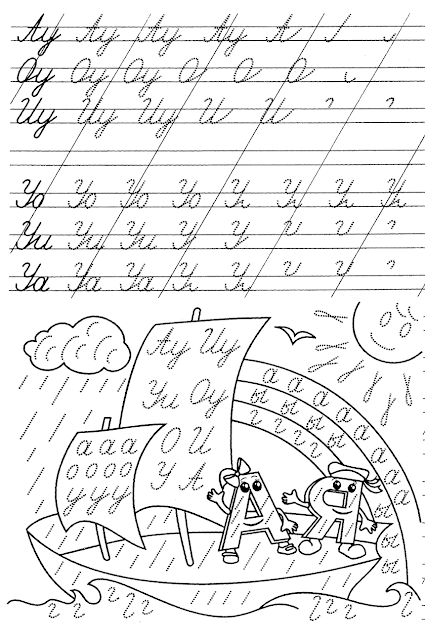 Ау Ау Ау Ау А
Оу Оу Оу О О О
Иу Иу Иу И И
Уо Уо Уо Уо
Уи Уи Уи У У
Уа Уа Уа У У
Ау Иу
Уи Оу
О И
У А
а а а
о о о о
у у у
а а а а а а а а
ы ы ы ы ы ы ы
г г г г г
А Я